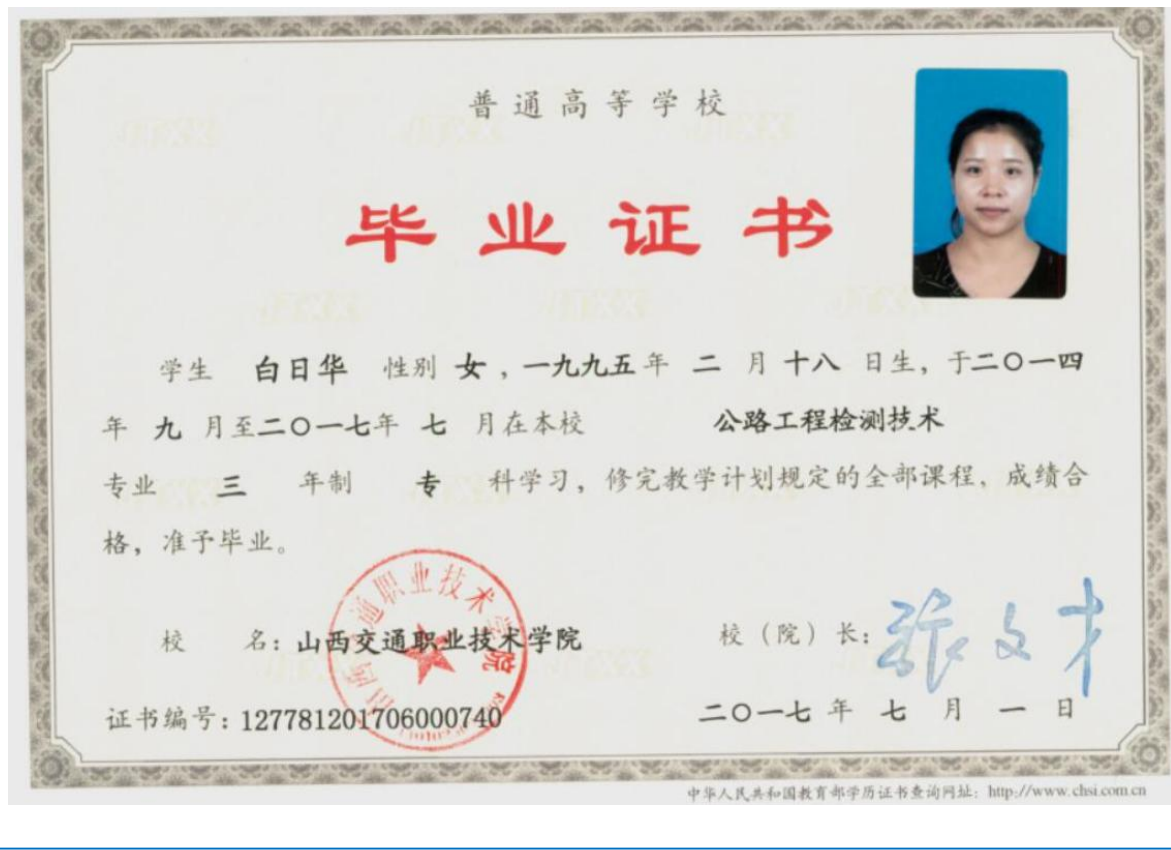 普通高等学校
毕业证书
学生 白日华 性别 女，一九九五年 二 月 十八 日生，于二〇一四
年 九 月至二〇一七年 七 月在本校 公路工程检测技术
专业 三 年制 专 科学习，修完教学计划规定的全部课程，成绩合
格，准予毕业。
校 名：山西交通职业技术学院 校（院）长：张文才
证书编号：127781201706000740 二〇一七 年 七 月 一 日
中华人民共和国教育部学历证书查询网址：http://www.chsi.com.cn